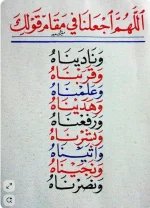 اَللّٰهُمَّ اجْعَلْنَا فِي مَقَامِ قَوْلِكَ
وَنَادَيْنَاهُ
وَقَرَّبْنَاهُ
وَعَلَّمْنَاهُ
وَهَدَيْنَاهُ
وَرَفَعْنَاهُ
وَبَشَّرْنَاهُ
وَآتَيْنَاهُ
وَنَجَّيْنَاهُ
وَنَصَرْنَاهُ